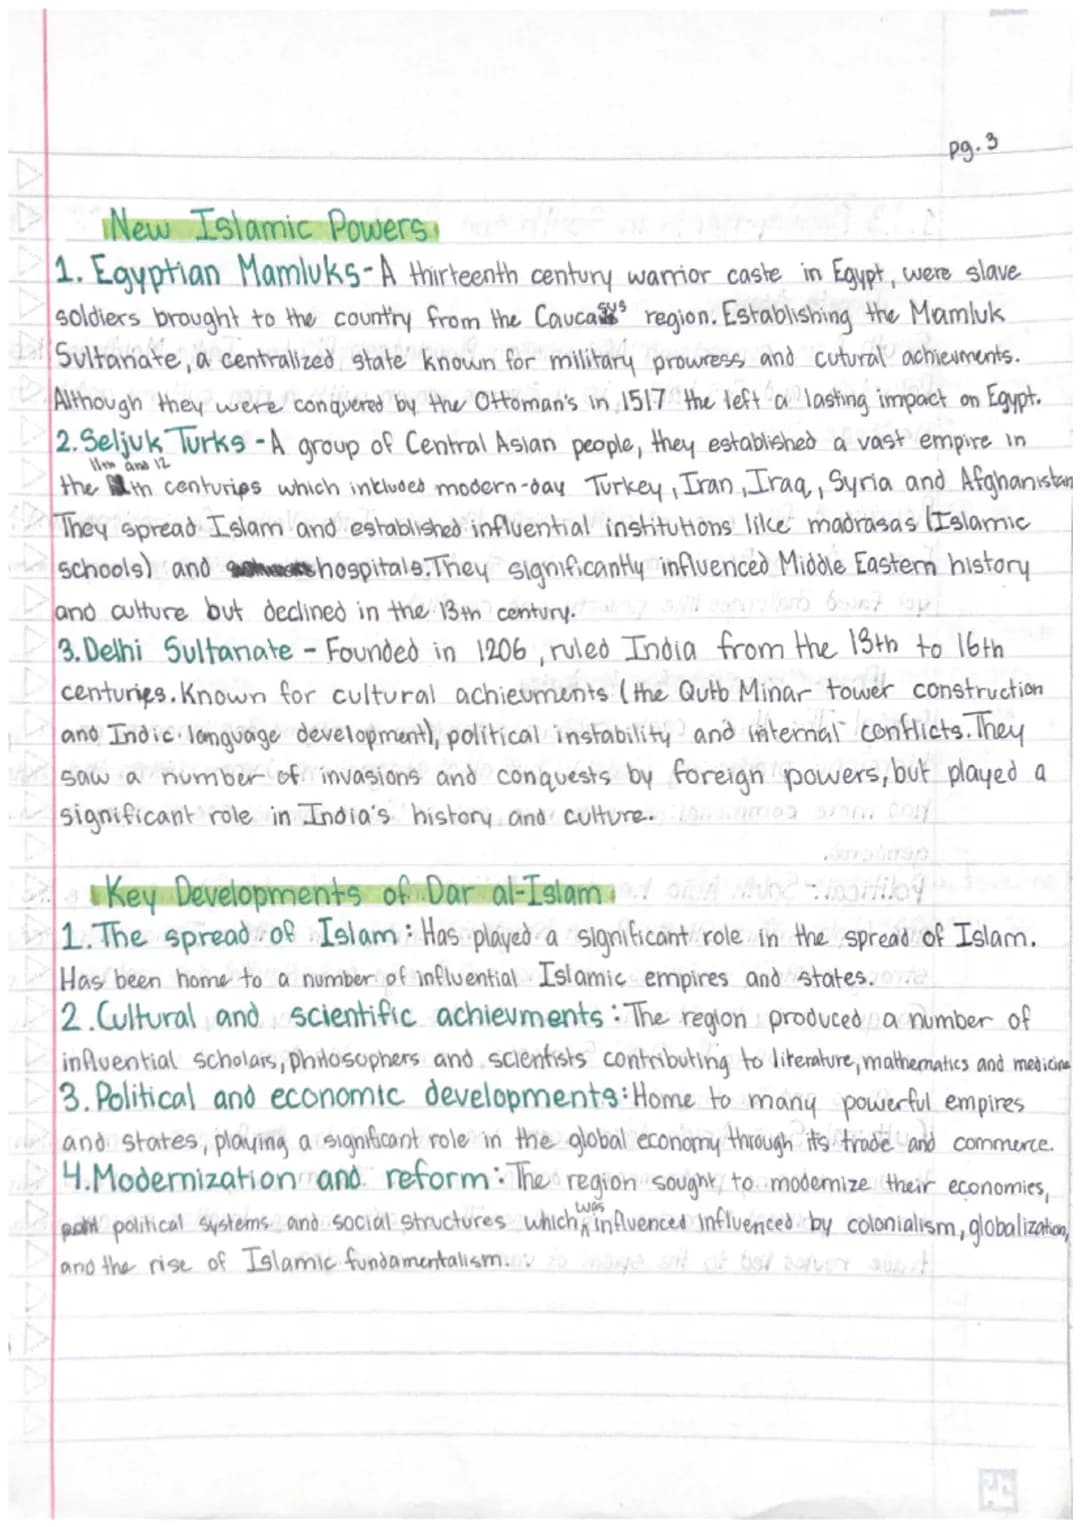 pg. 3
New Islamic Powers
1. Egyptian Mamluks - A thirteenth century warrior caste in Egypt, were slave
soldiers brought to the country from the Caucasus region. Establishing the Mamluk
Sultanate, a centralized state known for military prowress and cutural achievments.
Although they were conquered by the Ottoman's in 1517 the left a lasting impact on Egypt.
2. Seljuk Turks - A group of Central Asian people, they established a vast empire in
the 11th and 12th centuries which inkluded modern-day Turkey, Iran, Iraq, Syria and Afghanistan
They spread Islam and established influential institutions like madrasas (Islamic
schools) and hospitals. They significantly influenced Middle Eastern history
and culture but declined in the 13th century.
3. Delhi Sultanate - Founded in 1206, ruled India from the 13th to 16th
centuries. Known for cultural achievments (the Qutb Minar tower construction
and Indic language development), political instability and internal conflicts. They
saw a number of invasions and conquests by foreign powers, but played a
significant role in India's history and culture.
Key Developments of Dar al-Islam
1. The spread of Islam: Has played a significant role in the spread of Islam.
Has been home to a number of influential Islamic empires and states.
2. Cultural and scientific achievments: The region produced a number of
influential scholars, philosophers and scientists contributing to literature, mathematics and medicine
3. Political and economic developments: Home to many powerful empires
and states, playing a significant role in the global economy through its trade and commerce.
4. Modernization and reform: The region sought to modernize their economies,
political systems and social structures which was influenced influenced by colonialism, globalization,
and the rise of Islamic fundamentalism.